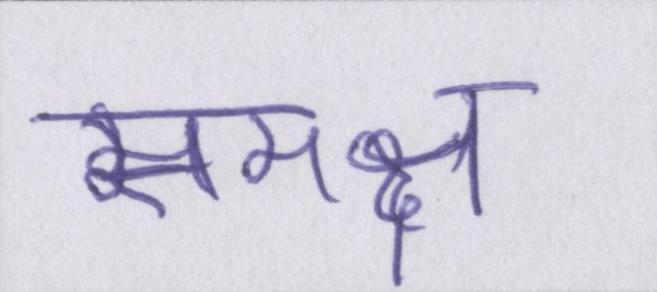 समक्ष